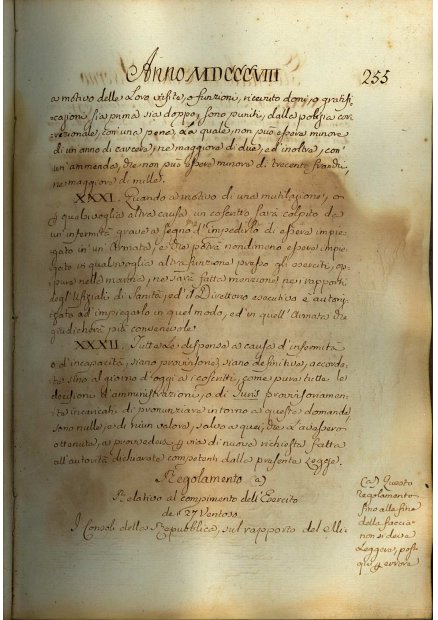 Anno MDCCCVIII 255
a motivo delle Loro visite, o funzioni, ricevuto doni, o gratifi-
cazione sia prima sia doppo, sono puniti, dalla polizia cor-
rezionale, con una pena, La quale, non può essere minore
di un anno di carcere, ne maggiore di due, ed inoltre, con
un'ammenda, che non può essere minore di trecento franchi,
ne maggiore di mille.
XXXI. Quando a motivo di una mutilazione, o
qualsivoglia altra causa un coscritto sarà colpito da
un'infermità grave a segno d'impedirlo di essere impie-
gato in un'Armata, e che potrà nondimeno essere impie-
gato in qualsivoglia altra funzione presso gli eserciti, op-
pure nella marina, ne sarà fatta menzione nei rapporti
degl'Ufiziali di Sanità, ed il Direttorio esecutivo è autoriz-
zato ad impiegarlo in quel modo, ed in quell'Armata che
giudicherà più convenevole
XXXII. Tutte le dispense a causa d'infermità
o d'incapacità, siano provvisorie, siano definitive, accorda-
te sino al giorno d'oggi a i coscritti, come pure tutte le
decisioni d'amministrazioni, o di Juris provvisoriamen-
te incaricati di pronunziare intorno a queste domande
sono nulle, e di niun valore, salvo a quei, che L'avessero
ottenute, a provvedersi via di nuova richiesta fatta
all'autorità dichiarate competenti dalla presente Legge.
Regolamento a)
Relativo al compimento dell'Esercito
de 27 Ventoso
I Consoli della Repubblica, sul rapporto del Mi-
(a) Questo
regolamento
fino alla fine
della faccia
non si deve
Leggere, post-
errore